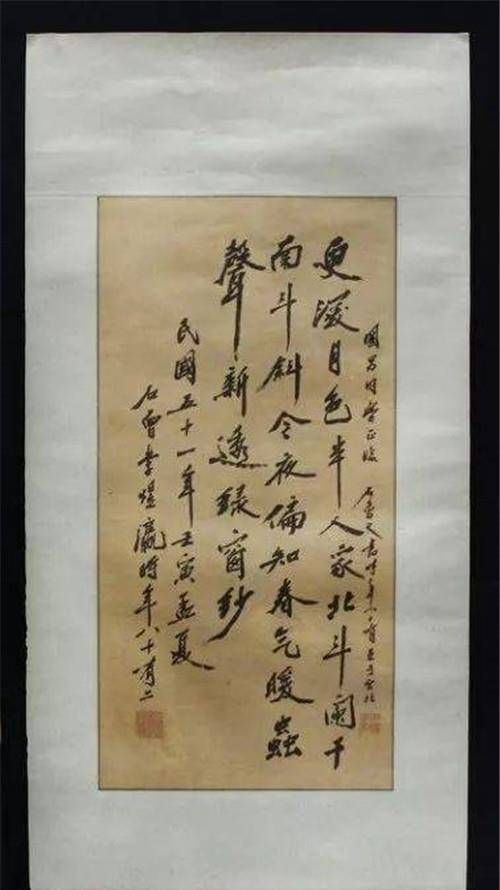 國昌同學正 石曾又書時年
更深月色半人家北斗闌干
南斗斜今夜偏知春气暖蟲
聲新透綠窗紗
民國五十一年壬寅孟夏
石曾李煜瀛時年八十有二